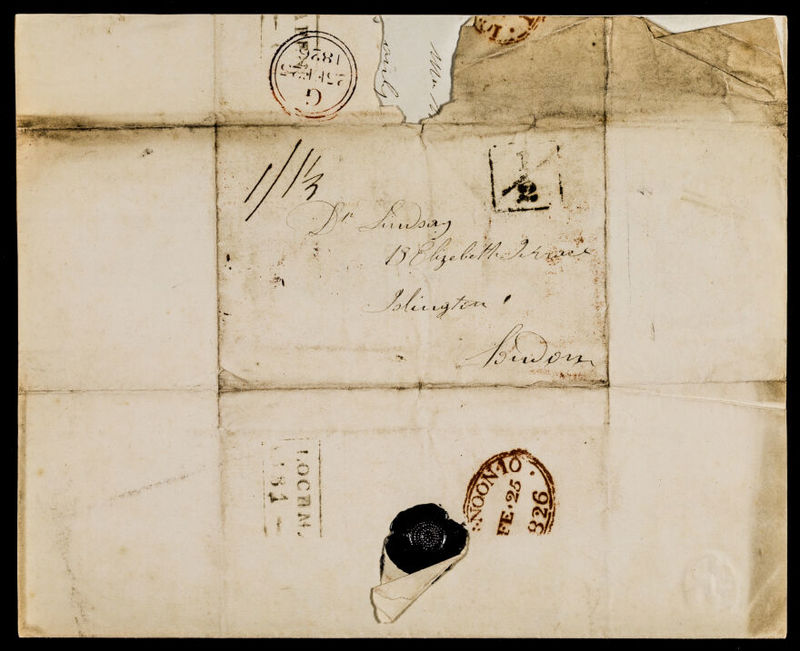 G
25 FE 25
1826
1/1½
1/2
Dr Lindsay
13 Elizabeth Terrace
Islington
London
LOCHM
181
NOON 10
FE. 25
826